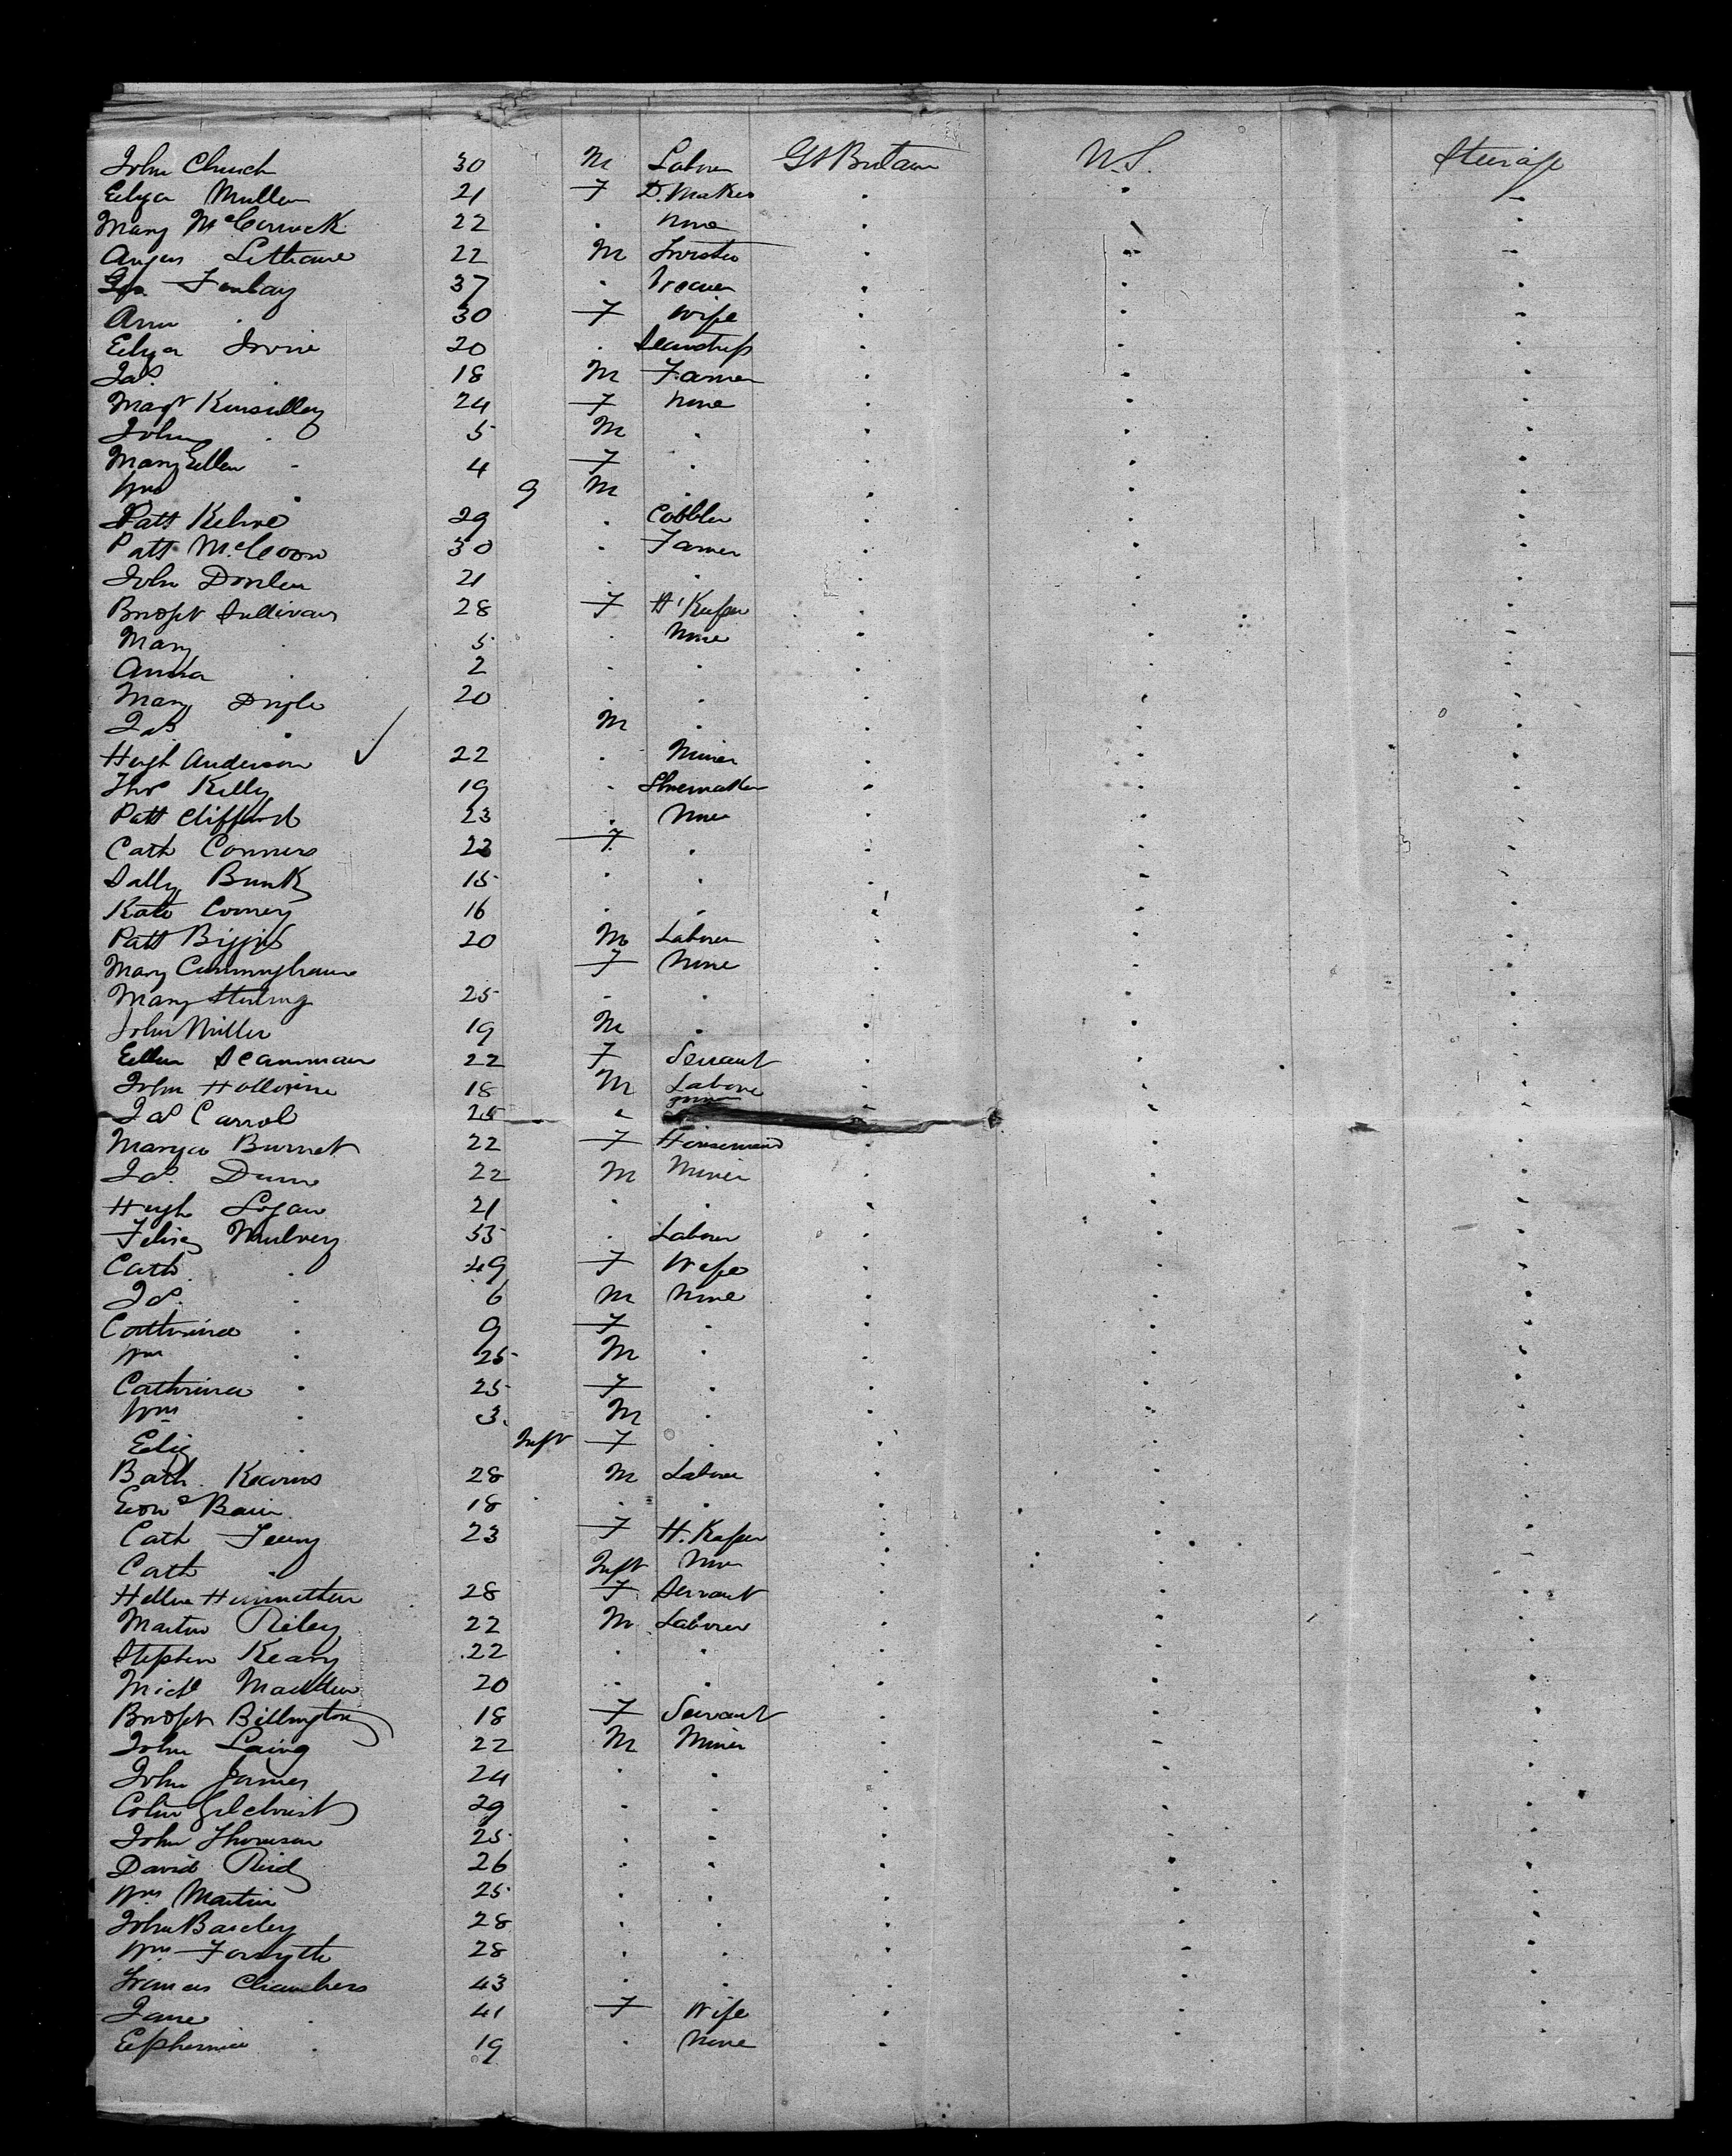 John Church 30 M Laborer Gt Britain U.S. Steerage
Eliza Mullen 21 F D. Maker
Mary McCormick 22 . None
Angus 22 M
Geo. Finlay 37 .
Ann . 30 F Wife
Eliza Irvine 20 .
Jas. . 18 M Farmer
Magt Kinsilley 24 F None
John . 5 M .
Mary Ellen . 4 F .
Wm . 9 M .
Patt 29 . Cobbler
Patt McCoon 30 . Farmer
John Donlen 21 . .
Bridgt Sullivan 28 F H' Keeper
Mary . 5 . None
Anna . 2 . .
Mary 20 . .
Jas . M .
Hugh Anderson ✓ 22 . Miner
Thos Kelly 19 . Shoemaker
Patt Clifford 23 . None
Cath Connors 23 F .
Sally 15 . .
Kate 16 . .
Patt Biggins 20 M Laborer
Mary Cunningham F None
Mary Sterling 25 . .
John Miller 19 M .
Ellen Scannman 22 F Servant
John 18 M Laborer
Jas Carrol 25 "
Burnet 22 F Housemaid
Jas. Dunn 22 M Miner
Hugh Logan 21 . .
Mulvey 53 . Laborer
Cath . 49 F Wife
Jas. . 6 M None
Cathrina . 9 F .
Wm . 25 M .
Cathrina . 25 F .
Wm . 3 M .
Eliz . Inft F .
Bath. Kearns 28 M Laborer
Edwd Bain 18 . .
Cath 23 F H. Keeper
Cath . Inft None
28 F Servant
Martin Riley 22 M Laborer
Stephen Keary 22 . .
Michl Madden 20 . .
Bridget Billington 18 F Servant
John Laing 22 M Miner
John James 24 . .
Colin Gilchrist 29 . .
John Thomson 25 . .
David Reid 26 . .
Wm Martin 25 . .
John Barclay 28 . .
Wm Forsyth 28 . .
Frances Chambers 43 . .
Jane . 41 F Wife
Ephemia . 19 . None